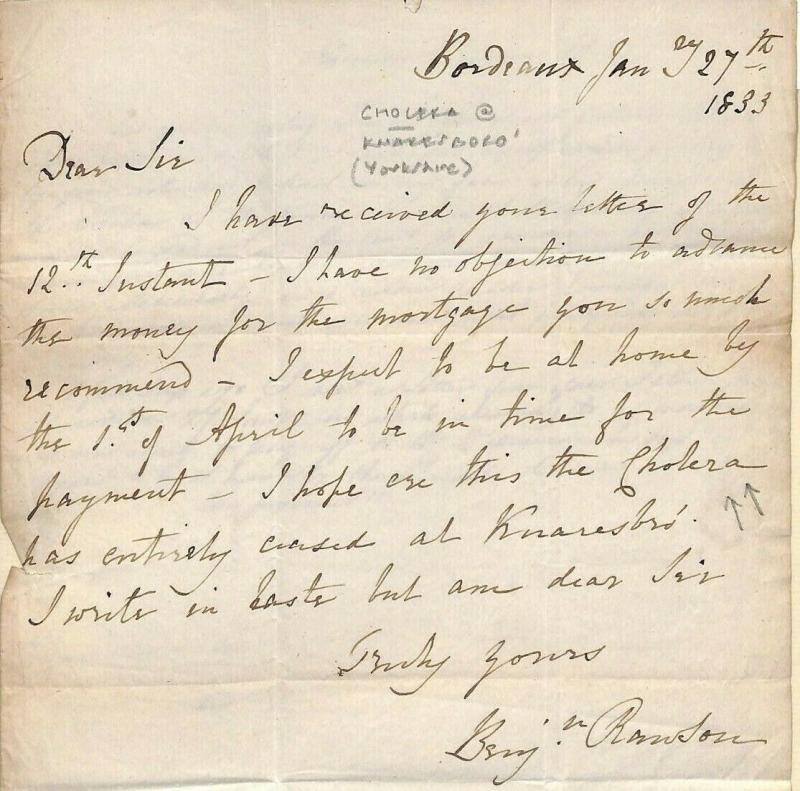 Bordeaux Jan ry 27th
1833
CHOLERA @
KNARESBORO'
(Yorkshire)
Dear Sir
I have received your letter of the
12th Instant - I have no objection to advance
the money for the mortgage you so much
recommend - I expect to be at home by
the 1st of April to be in time for the
payment - I hope ere this the Cholera
has entirely ceased at Knaresbro'.
I write in haste but am dear Sir
Truly yours
Benj.n Rawson